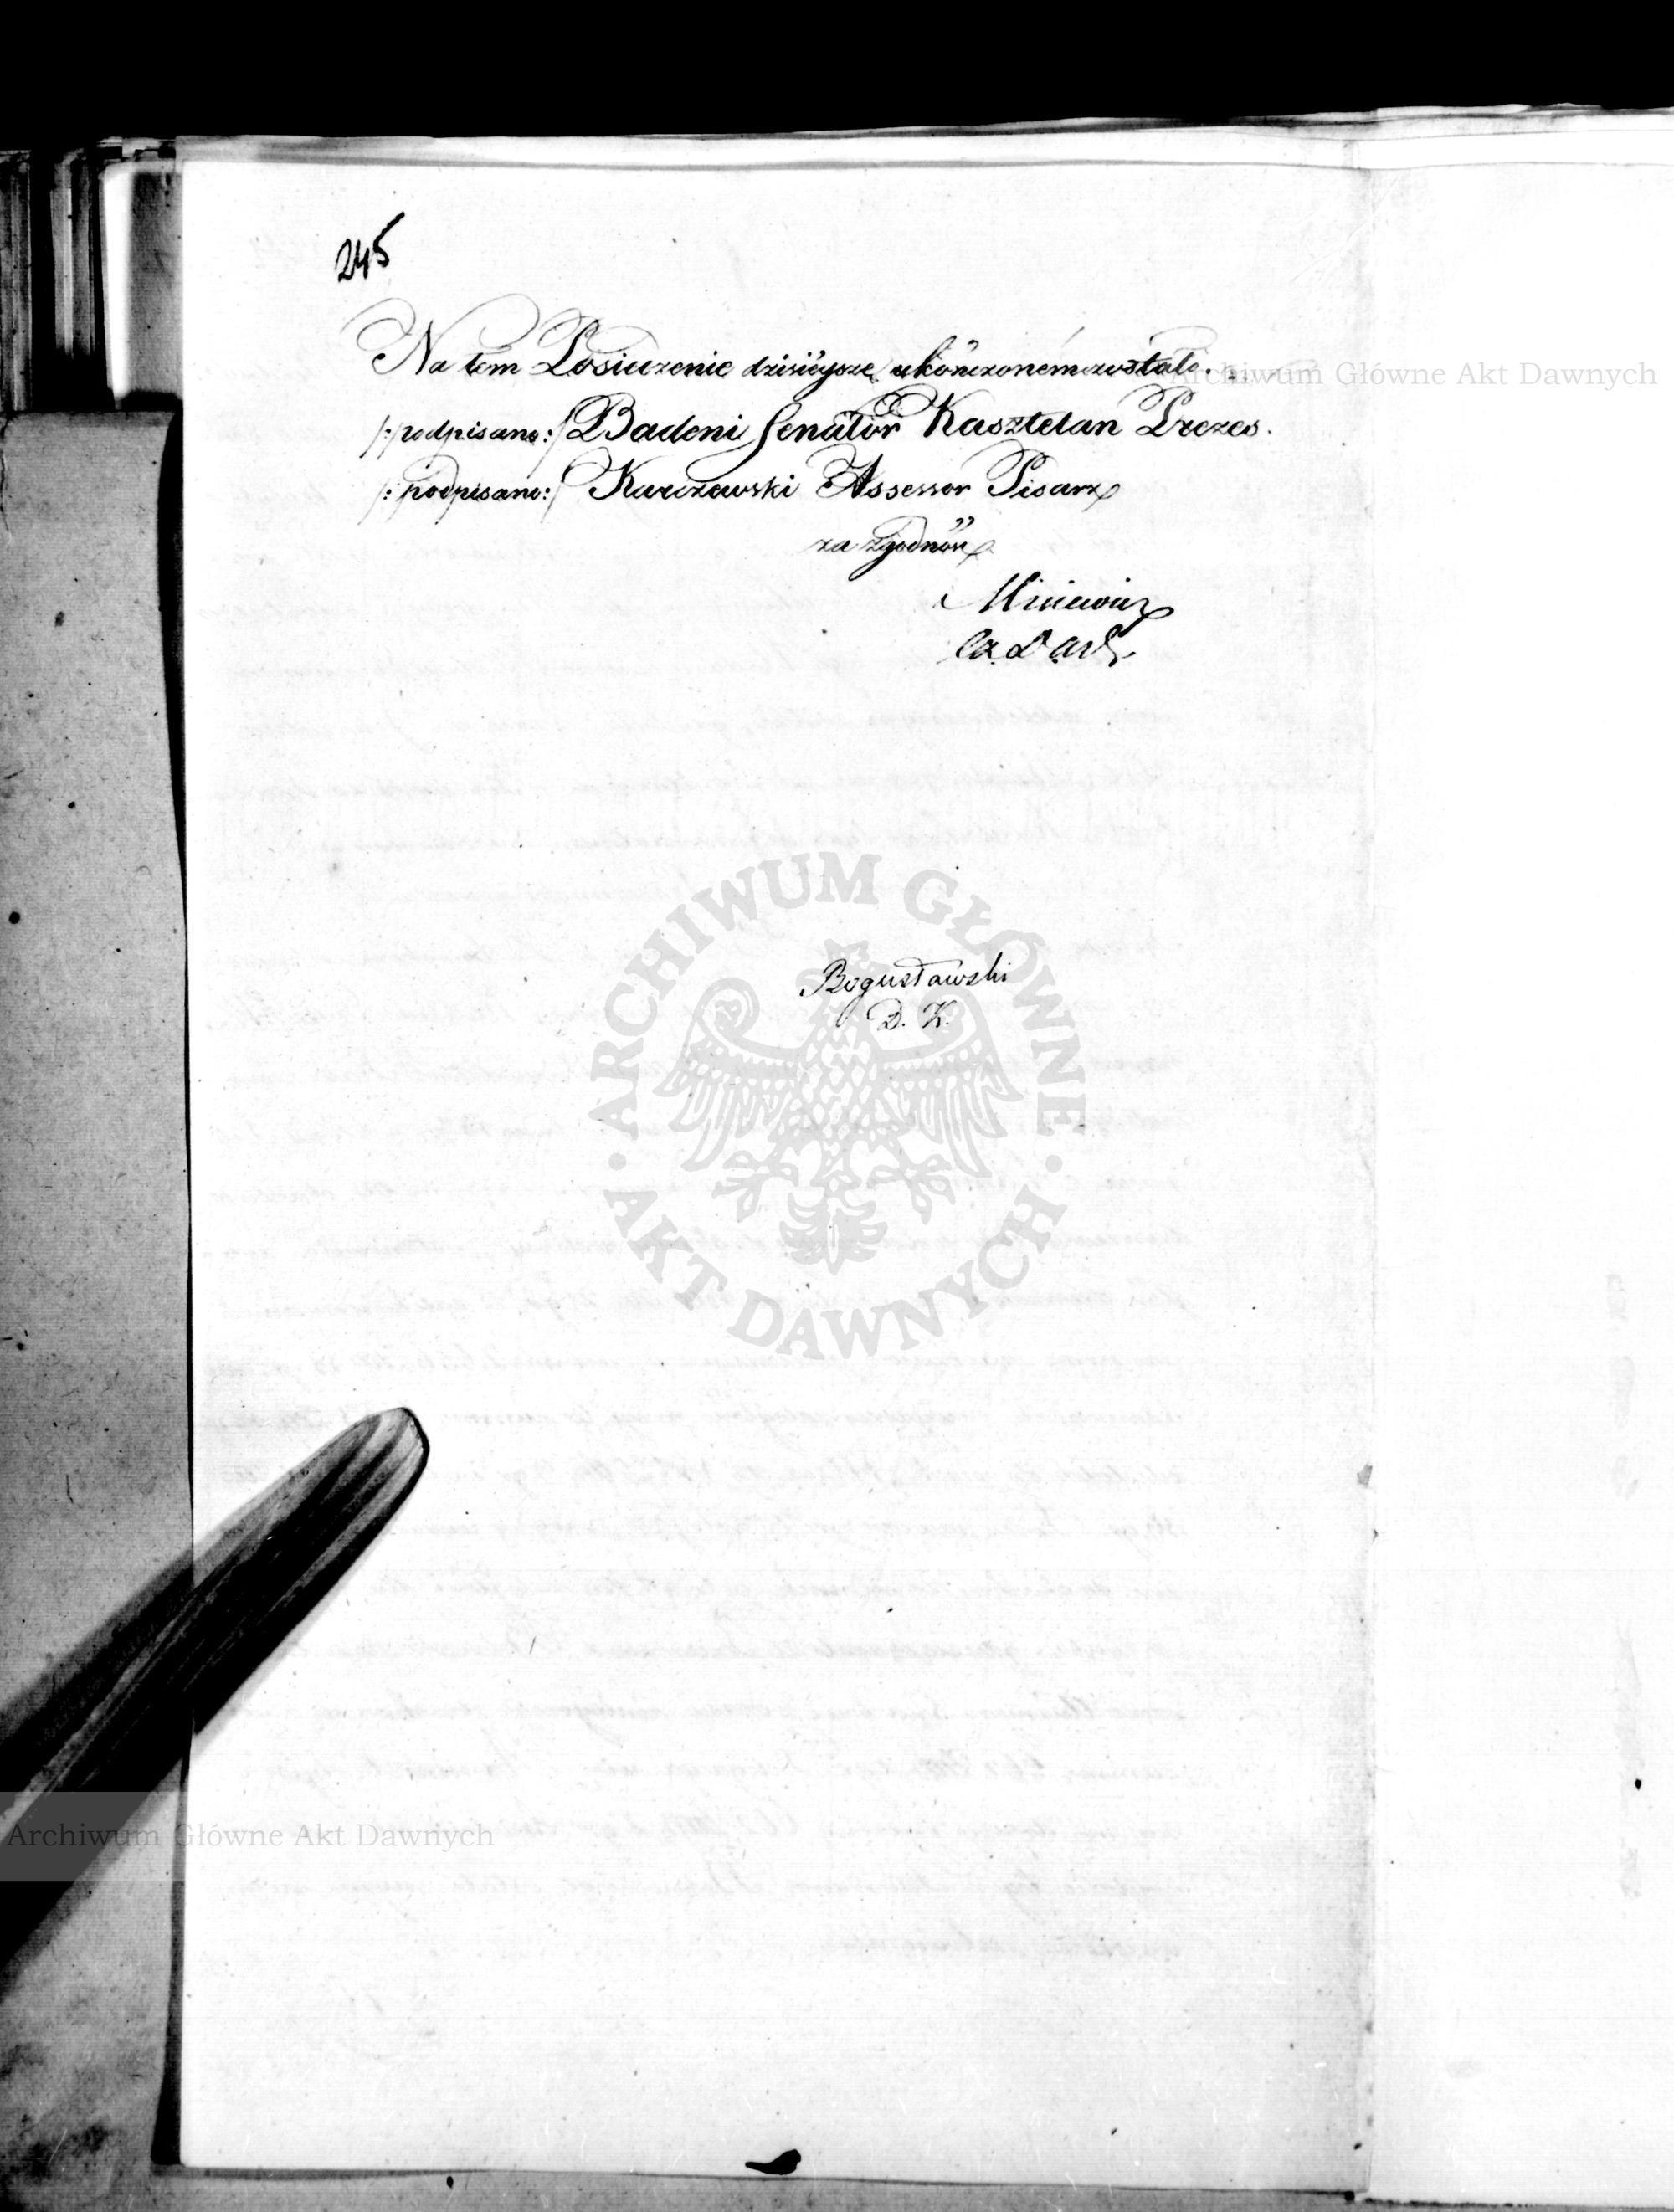 245
Na tem Posiedzenie dzisieysze ukończonem zostało.
/:podpisano:/ Badeni Senator Kasztelan Prezes.
/:podpisano:/ Karczewski Assessor Pisarz
za zgodność
Bogusławski
D. K.
Archiwum Główne Akt Dawnych
ARCHIWUM GŁÓWNE AKT DAWNYCH
Archiwum Główne Akt Dawnych